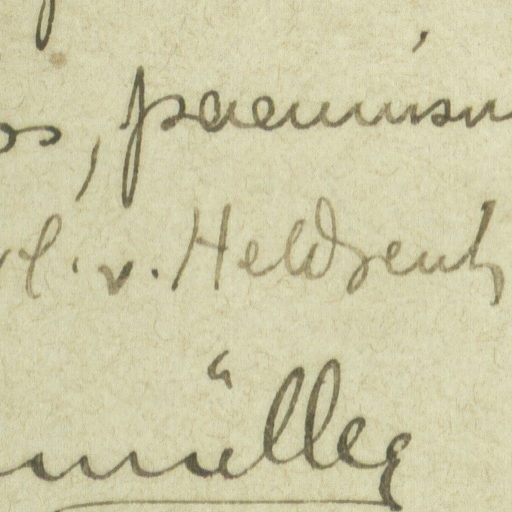 os, paeninsu
v. Heldreich
müller